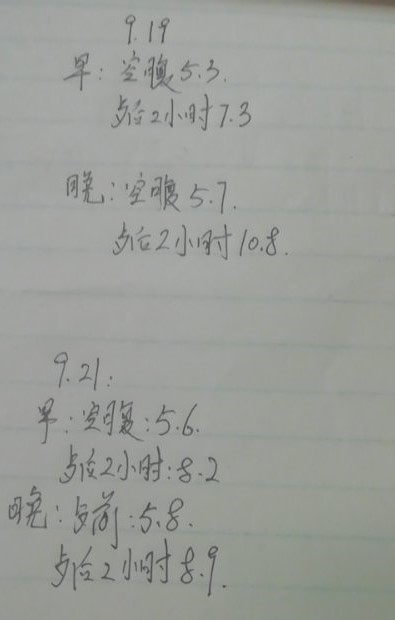 9.19
早：空腹5.3.
歺后2小时7.3
晚：空腹5.7.
歺后2小时10.8.
9.21：
早：空腹：5.6.
歺后2小时：8.2
晚：歺前：5.8.
歺后2小时8.9.